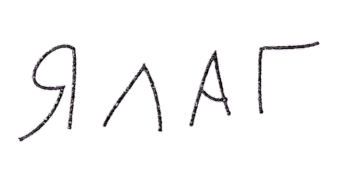 ЯЛАГ